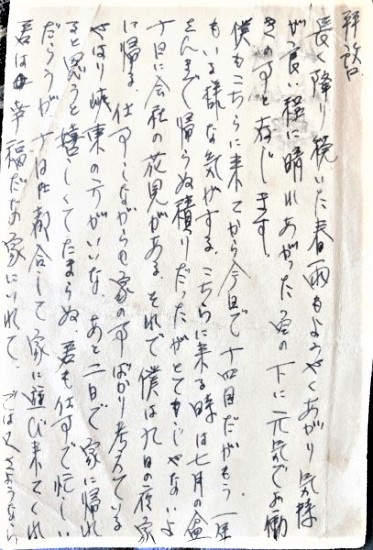 拝啓
長降り続いた春雨もようやくあがり気持
が良い程に晴れあがった空の下に元気でお働
きの事と存じます
僕もこちらに来てから今日で十四日だがもう一年
もいる様な気がする、こちらに来る時は七月の盆
まで帰らぬ積りだったがとてもじゃないよ
十日に会社の花見がある、それで僕は九日の夜家
に帰る、仕事しながらも家の事ばかり考えている
やはり の方がいいな、あと二日で家に帰れ
ると思うと嬉しくてたまらぬ、君も仕事で忙しい
だろうが、十日は都合して家に遊び来てくれ
君は幸福だな家にいれて、ではまたさようなら